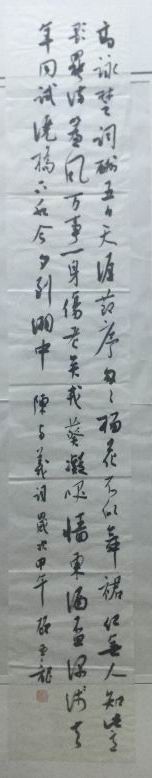 高詠楚詞酬五日天涯節序匆匆榴花不似舞裙紅無人知此意
歌罷滿簾風万事一身傷老矣戎葵凝笑墙東酒盃深浅去
年同試澆橋下水今夕到湘中 陳与義詞 歲次甲午